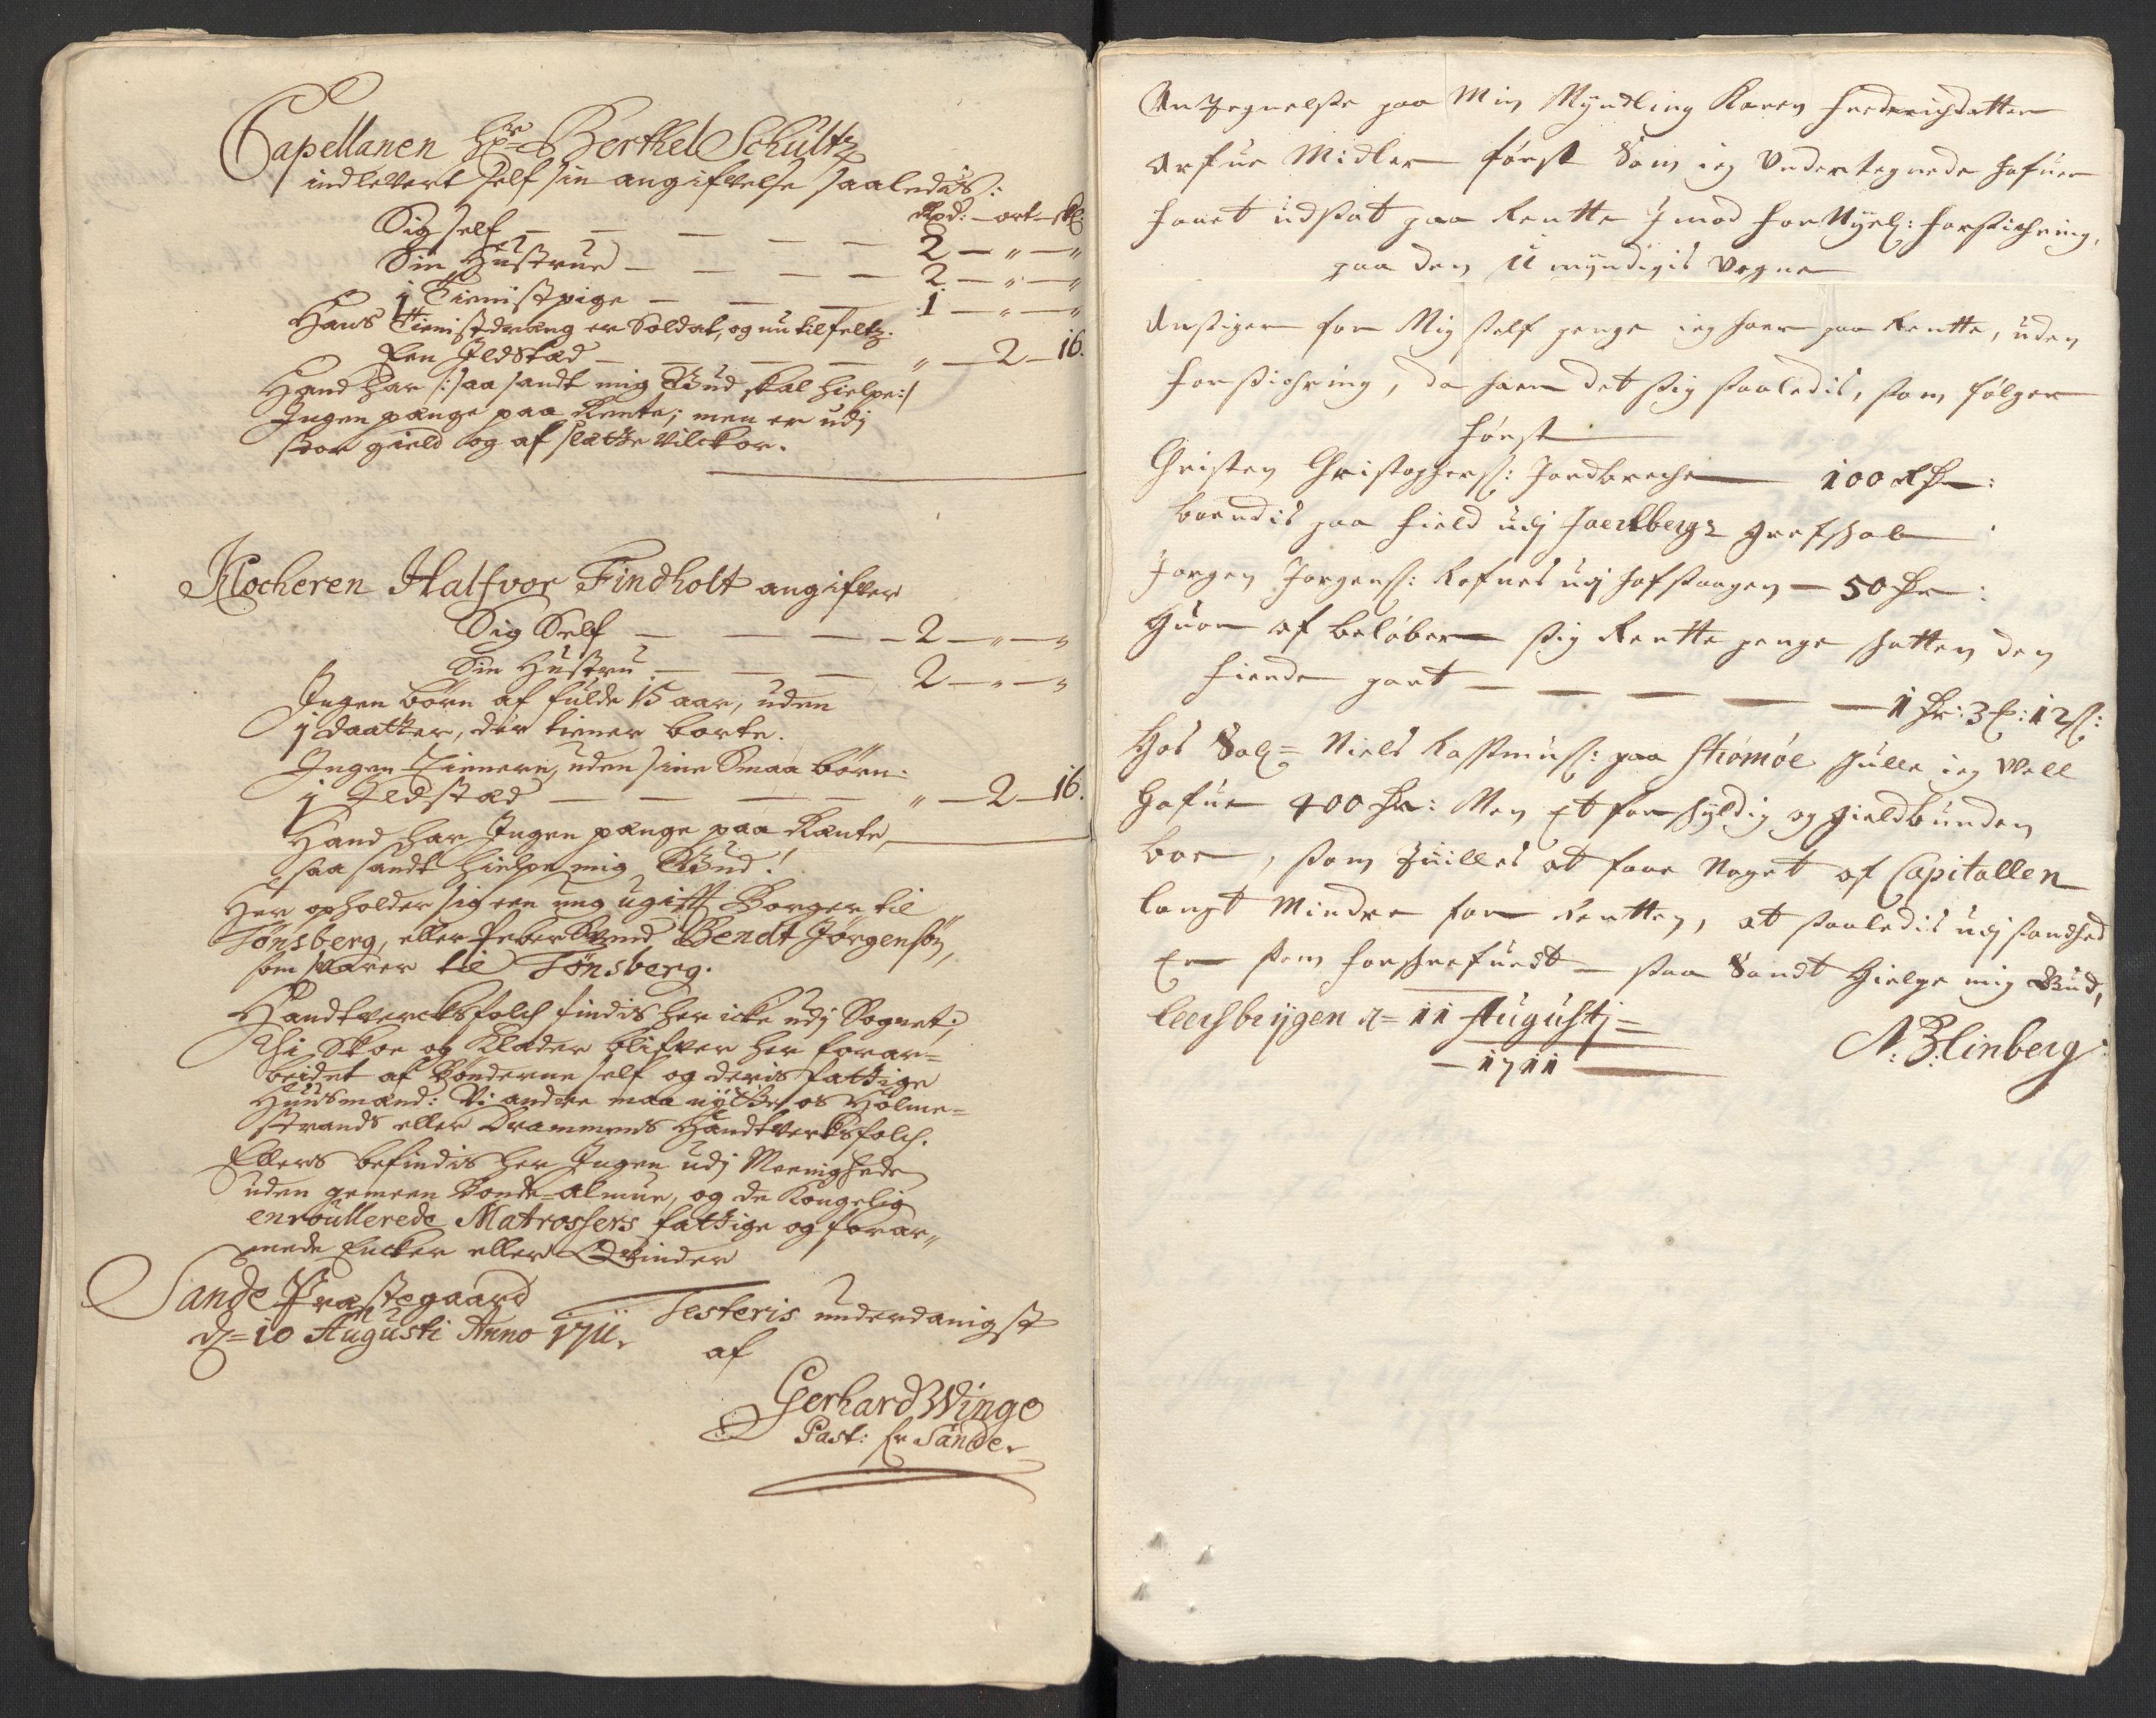 Capellanen Hr= Berthel Schultz
indlevert self sin angifvelse saaledis:
Rixd: — ort — sk:
Sig self — — — — 2 — „ — „
Sin Hustrue — — — — 2 — „ — „
1 Tienistpige — — — 1 — „ — „
Hans Tienistdræng er Soldat, og nu til felts.
Een Ildstæd — — — — „ — 2 — 16.
Hand har /: saa sandt mig Gud skal hielpe :/
Ingen pænge paa Rente; men er udj
stor gield og af slætte vilckor.
Klocheren Halfvor Findholt angifver
Sig Self — — — 2 — „ — „
Sin Hustru — — — 2 — „ — „
Ingen børn af fulde 15 aar, uden
1 daatter, der tiener borte.
Ingen Tienere, uden sine Smaa børn.
1 Ildstæd — — — — „ — 2 — 16.
Hand har Ingen pænge paa Rænte,
saa sandt hielpe mig Gud!
Her opholder sig een ung ugift Borger til
Tönsberg, eller Peber Svend Bendt Jørgensøn,
som svarer til Tönsberg.
Handtvercksfolch findis her icke udj Sognet;
thi Skoe og Klæder blifver her forar=
beidet af Bønderne self og deris fattige
Huusmænd: Vi andre maa nytte os Holme=
strands eller Drammens Handtverksfolch.
Ellers befindis her Ingen udj Meenigheden
uden gemeen Bonde=almue, og de Kongelig
enroullerede Matrossers fattige og forar„
mede Encker eller Qvinder
Sande Præstegaard
d= 10 Augusti Anno 1711.
Testeris underdanigst
af
Gerhard Winge
Past: Sande.
Antegnelse paa Min Myndling Karen Frederichsdatter
Arfue Midler først Som ieg Undertegnede hafuer
hauet udsat paa Rentte Imod forsichring,
paa den Umyndigis Vegne
Ansiger for Mig self penge ieg haer paa Rentte, uden
forsichring, da haer det sig saaledis, som følger
først
Christen Christophers: Jordbreche — 100 Rdr:
boendis paa field udj Jarlsbergs grefskab
Jørgen Jørgens: Refnes udj Hafslaagen — 50 dr:
Huor af beløber sig Rentte penge skatten den
fierde part — — — — — 1 dr: 3 : 12 s:
Hos Sal= Niels Rassmus: paa Strömöe skulle ieg Vell
hafue 400 dr: Men Et for skyldig og gieldbunden
boe, som tuilles at faae Noget af Capitallen
langt Mindre for Rentten, at saaledis udj sandhed
Er som forskrefuedt — saa Sandt Hielpe mig Gud,
d= 11 Augustj=
— 1711 —
N: B: Linberg